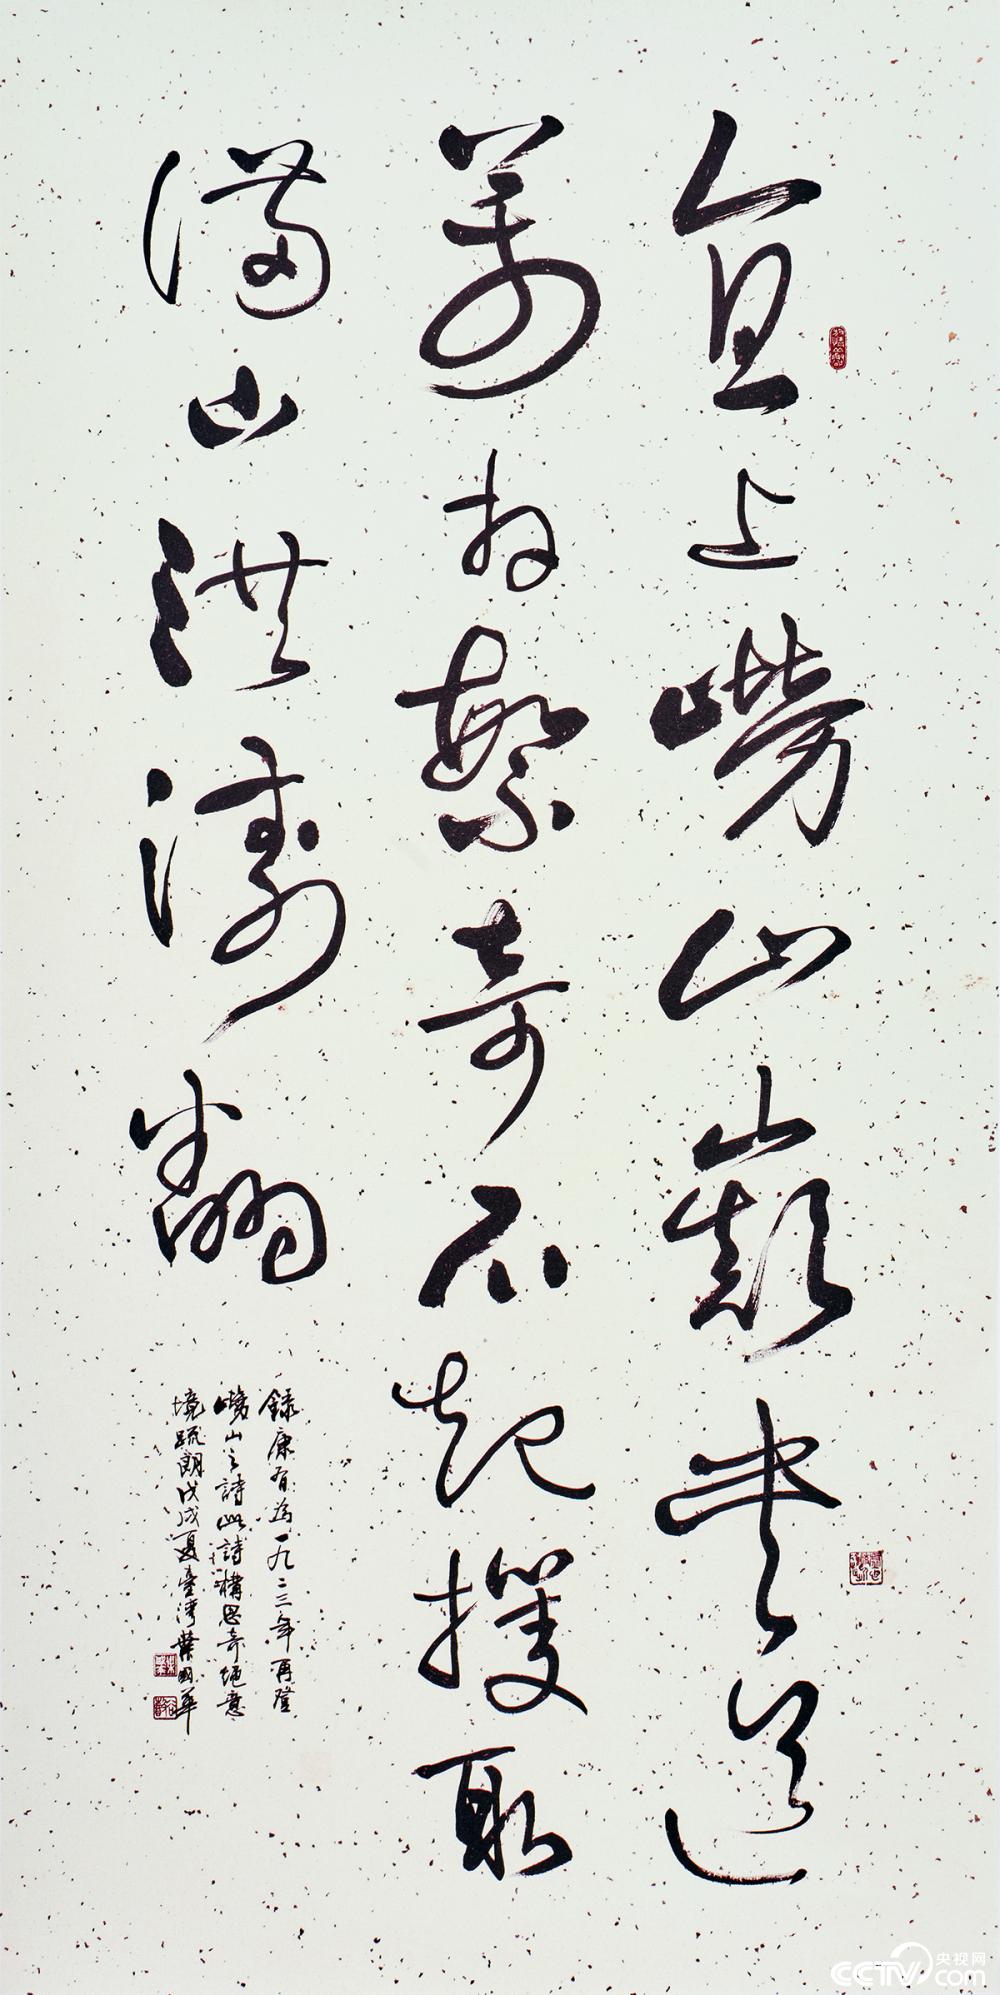 直上嶗山巔道
萬繁奇石起攫取
滿山洪濤翻
錄康有為一九二三年再登
嶗山之詩此詩構思奇絕意
境疏朗戊戌夏臺灣葉國華
央视网
CCTV.com